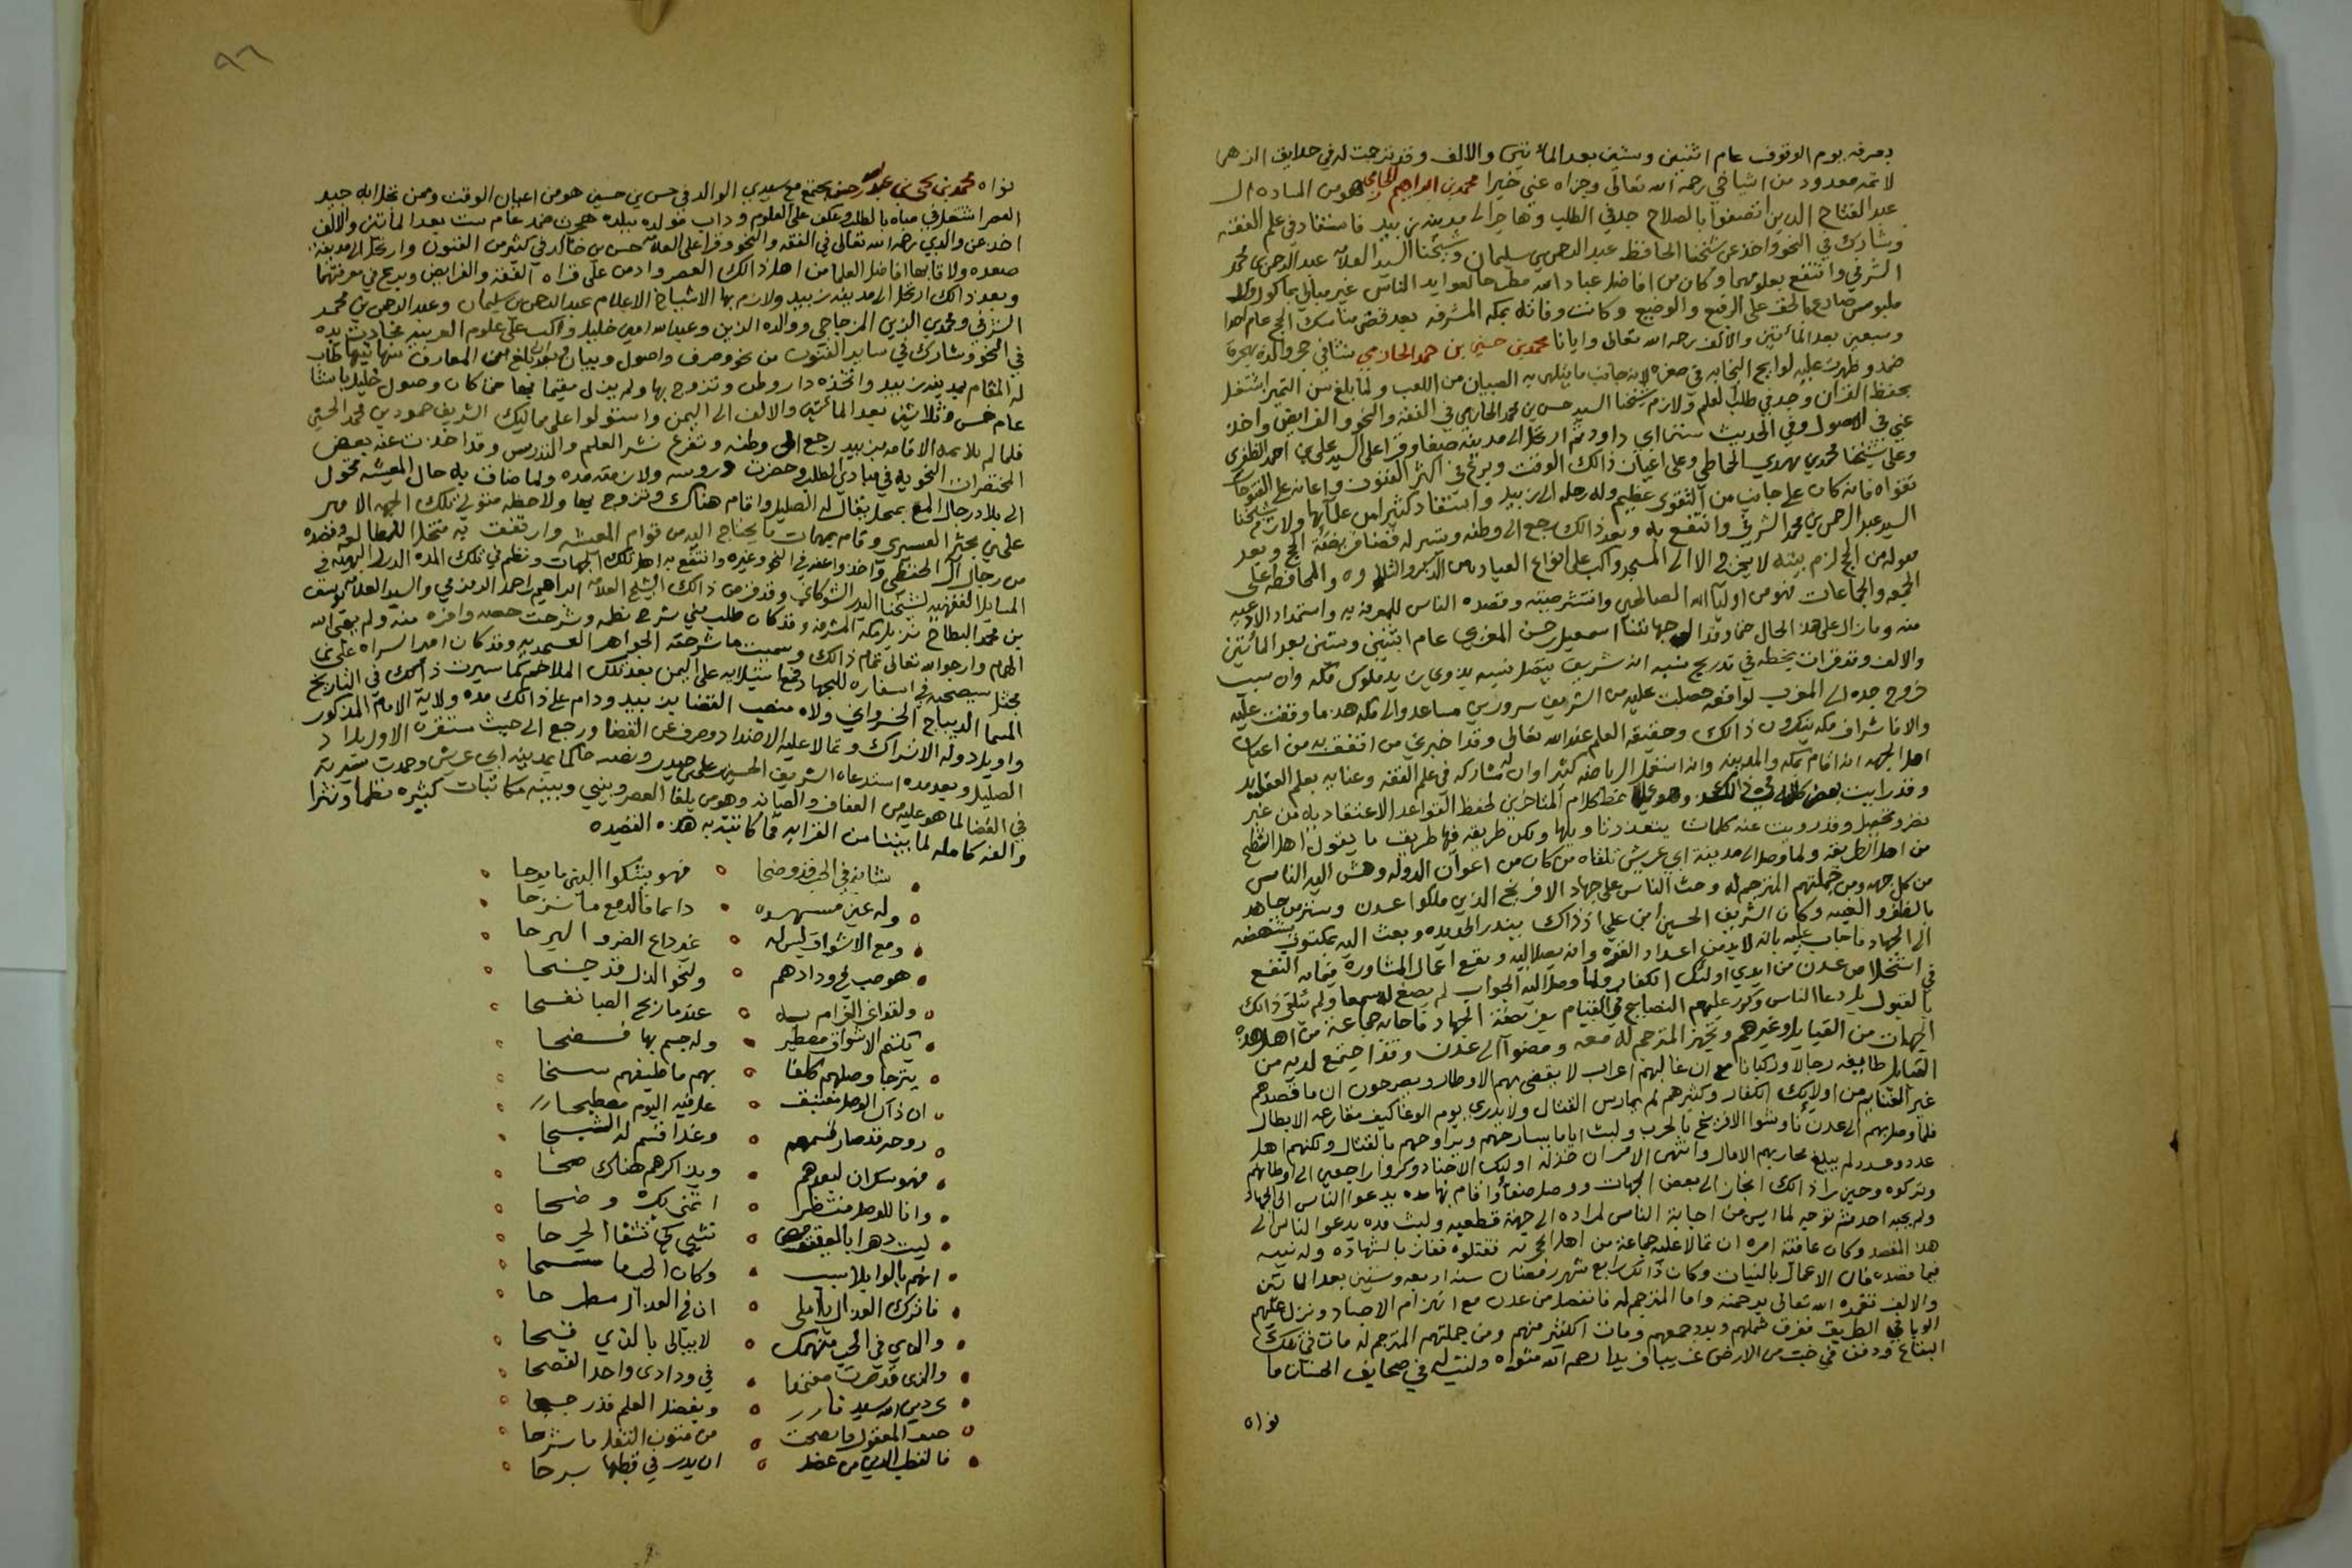 بعرفه يوم الوقوف عام اثنين وستين بعد المأتين والالف وقد ترجمت له في حدايق الزهر
لانه معدود من اشياخي رحمه الله تعالى وجزاه عني خيرا محمد بن ابراهيم هو من الساده ال
عبد الفتاح الذين اتصفوا بالصلاح جد في الطلب وهاجر الى مدينه زبيد فاستفاد في علم الفقه
وشارك في النحو واخذ عن شيخنا الحافظ عبد الرحمن بن سليمان وشيخنا السيد العلامه عبد الرحمن بن محمد
الشرفي وانتفع بعلومهما وكان من افاضل عباد الله مطرحا لعوايد الناس غير مبالي بماكول ولا
ملبوس صادع بالحق على الرفيع والوضيع وكانت وفاته بمكه المشرفه بعد قضى مناسك الحج عام احدا
وسبعين بعد المأتين والالف رحمه الله تعالى وايانا محمد بن حسين بن حمد الحازمي نشا في حجر والده بهجرة
ضمد وظهرت عليه لوايح النجابه في صغره لانه جانب ما يتلهى به الصبيان من اللعب ولما بلغ سن التميز اشتغل
بحفظ القران وجد في طلب العلم ولازم شيخنا السيد حسن بن محمد الحازمي في الفقه والنحو والفرايض واخذ
عني في الاصول وفي الحديث سنن ابي داود ثم ارتحل الى مدينه صنعا وقرا على السيد علي بن احمد الظفري
وعلى شيخنا محمد بن مهدي الحماطي وعلى اعيان ذالك الوقت وبرع في اكثر الفنون واعانه على الفتوحات
تقواه فانه كان على جانب من التقوى عظيم وله رحله الى زبيد واستفاد كثيرا من علمآئها ولازم شيخنا
السيد عبد الرحمن بن محمد الشرفي وانتفع به وبعد ذالك رجع الى وطنه وتيسر له قضا فريضة الحج وبعد
قفوله من الحج لزم بيته لا يخرج الا الى المسجد واكب على انواع العباده من الذكر والتلاوه والمحافظه على
الجمعه والجماعات فهو من اوليآ الله الصالحين وانتشر صيته وقصده الناس للمعرفه به واستمداد الادعيه
منه وما زال على هذ الحال حتى وفد الى جهاتنا اسمعيل حسن المغربي عام اثنين وستين بعد المأتين
والالف وقد قرات بخطه في تدريج نسبه انه شريف يتصل نسبه بذوي زيد ملوك مكه وان سبب
خروج جده الى المغرب لواقعه حصلت عليه من الشريف سرور بن مساعد والى مكه هذ ما وقفت عليه
والا فاشراف مكه ينكرون ذالك وحقيقه العلم عند الله تعالى وقد اخبرني من اتفق به من اعيان
اهل الجهه انه اقام بمكه والمدينه وانه استعمل الرياضه كثيرا وان له مشاركه في علم الفقه وعنايه بعلم العقايد
وقد رايت بعض كلامه في ذالك وهو على نمط كلام المتاخرين لحفظ القواعد الاعتقاديه من غير
نظر وتحصيل وقد رويت عنه كلمات يتعذر تاويلها ولكن طريقه فيها طريف ما يقول اهل الشطح
من اهل الطريقه ولما وصل الى مدينة ابي عريش تلقاه من كان من اعوان الدوله وهش اليه الناس
من كل جهه ومن جملتهم المترجم له وحث الناس على جهاد الافرنج الذين ملكوا عدن وبشر من جاهد
بالظفر والغنيمه وكان الشريف الحسين ابن علي اذ ذاك ببندر الحديده وبعث اليه بمكتوب يستنهضه
الى الجهاد فاجاب عليه بانه لابد من اعداد القوه وانه يصل اليه وتقع اعمال المشاوره فيما به النفع
في استخلاص عدن من ايدي اولئك الكفار ولما وصل اليه الجواب لم يصغ له سمعا ولم يتلقى ذالك
بالقبول بل دعا الناس وكرر عليهم النصايح في القيام بفريضة الجهاد فاجابه جماعة من اهل هذه
الجهات من القبايل وغيرهم وتجهز المترجم له معه ومضوآ الى عدن وقد اجتمع لديه من
القبايل طايفه رجالا وركبانا مع ان غالبهم اعراب لا يقضى بهم الاوطار ويصرحون ان ما قصدهم
غير الغنايم من اولايك الكفار وكثيرهم لم يمارس القتال ولا يدري يوم الوغا كيف مقارعه الابطال
فلما وصل بهم الى عدن ناوشوا الافرنج بالحرب ولبث اياما يسارحهم ويراوحهم بالقتال ولكنهم اهل
عدد وعدد لم يبلغ محاربهم الامال وانتهى الامر ان خذله اوليك الاجناد وكروا راجعين الى اوطانهم
وتركوه وحين راذالك انحاز الى بعض الجهات ووصل صنعآ واقام بها مده يدعوا الناس الى الجهاد
ولم يجبه احد ثم توجه لما ايس من اجابة الناس لمراده الى جهة قطعبه ولبث مده يدعوا الناس الى
هذ المقصد وكان عاقبة امره ان تمالا عليه جماعة من اهل الجهه فقتلوه ففاز بالشهاده وله نيه
فيما قصده فان الاعمال بالنيات وكان ذالك رابع شهر رمضان سنه اربعه وستين بعد الماتين
والالف تغمده الله تعالى برحمته واما المترجم له فانفصل من عدن مع انهزام الاجناد ونزل عليهم
الوبا في الطريق ففرق شملهم وبدد جمعهم ومات اكثير منهم ومن جملتهم المترجم له مات في تلك
البقاع ودفن في خبت من الارض غريبا فريدا رحم الله مثواه ولنثبت في صحايف الحسنات ما
نواه
٩٦
نواه محمد بن يحي بن عبد الله يجتمع مع سيدي الوالد في حسن بن حسين هو من اعيان الوقت وممن نحل ابه جيد
العصر اشتغل في صباه بالطلب وعكف على العلوم وداب مولده ببلده هجرة ضمد عام ست بعد المأتين والالف
اخذ عن والدي رحمه الله تعالى في الفقه والنحو وقرا على العلامه حسن بن خالد في كثير من الفنون وارتحل الى مدينة
صعده ولاقا بها افاضل العلما من اهل ذالك العصر وادمن على قراه الفقه والفرايض وبرع في معرفتهما
وبعد ذالك ارتحل الى مدينة زبيد ولازم بها الاشياخ الاعلام عبد الرحمن بن سليمان وعبد الرحمن بن محمد
الشرفي ومحمد بن الزين المزجاجي ووالده الزين وعبد الله امين خليل واكب على علوم العربيه فحادت يده
في النحو وشارك في ساير الفنون من نحو وصرف واصول وبيان وبلغ من المعارف منها نيتها طاب
له المقام بمدينه زبيد واتخذه دار وطن وتزوج بها ولم يزل مقيما بها حتى كان وصول خليل باشا
عام خمس وثلاثين بعد المأتين والالف الى اليمن واستولوا على مماليك الشريف حمود بن محمد الحسني
فلما لم يلايمه الاقامه بزبيد رجع الى وطنه وتفرغ لنشر العلم والتدريس وقد اخذت عنه بعض
المختصرات النحويه في مبادي الطلب وحضرت دروسه ولازمته مده ولما ضاق به حال المعيشه تحول
الى بلاد رجال المع بمحل يقال له الصليل واقام هناك وتزوج بها ولاحظه متولي تلك الجهه الامير
علي بن مجثل العسيري وقام بمهمات ما يحتاج اليه من قوام المعيشه وارتفق به متحلا للمطالعه وقصده
من رجال ال الحفظي واخذوا عنه في النحو وغيره وانتفع به اهل تلك الجهات ونظم في تلك المده الدرر البهيه في
المسايل الفقهيه لشيخنا البدر الشوكاني وقد قرض ذالك الشيخ العلامه ابراهيم بن احمد الزمزمي والسيد العلامه يوسف
بن محمد البطاح نزيل مكه المشرفه وقد كان طلب مني شرح نظمه وشرحت حصه وافره منه ولم يتم الله
المام وارجوا الله تعالى تمام ذالك وسميت ما شرحته الجواهر العسجديه وقد كان امير السراه علي بن
مجثل يستصحبه في اسفاره للجهاد ومع استيلايه على اليمن بعد تلك الملاحم كما سيرت ذالك في التاريخ
المسما الديباج الخسرواني ولاه منصب القضا بزبيد ودام على ذالك مده ولاية الامام المذكور
واويل دوله الاتراك وتمالا عليه الاضداد وصرف عن القضا ورجع الى حيث مستقره الاول بلاد
الصليل وبعد مده استدعاه الشريف الحسين علي بن حيدر ونصبه حاكما بمدينة ابي عريش وحمدت سيرته
في القضا لما هو عليه من العفاف والصيانه وهو من بلغا العصر وبيني وبينه مكاتبات كثيره نظما ونثرا
والفه كامله لما بيننا من القرابه فما كاتبته به هذه القصيده
شانه في الحب قد وضحا ○ فهو يشكوا البين ما برحا
وله عين مسهره • دايما فالدمع ما نزحا
ومع الاشواق ليس له ○ غير داع الضر والبرحا
هو صب في ودادهم ○ ولنحو الذل قد جنحا
ولقداعى الغرام به ○ عندما ريح الصبا نفحا
يكتم الاشواق مصطبر • وله جسم بها فضحا
يترجا وصلهم كلفا ○ بهم ما طيفهم سنحا
ان ذاك الوصل مغتبق • عل فيه اليوم مصطبحا
روحه قد صار قسمهم ○ وغدا قسم له الشبحا
فهو سكران لبعدهم • وبذاكرهم هناك صحا
وانا للوصل منتظرا • اتمنى بك وضحا
ليت دهرا بالعقيق مضى ○ ينثني كي نشفا الجرحا
انهم بالوابل سبب • وكان الحب ما سمحا
فاترك العذال يا املي ○ ان في العذال مطرحا
والذي في الحب منهمك ○ لا يبالي بالذي قبحا
والذي قد صرت مفتخرا • في ودادي واحد الفصحا
• وبفضل العلم قد رجحا
○ من فنون النقل ما شرحا
○ ان يدر في قطبها سرحا